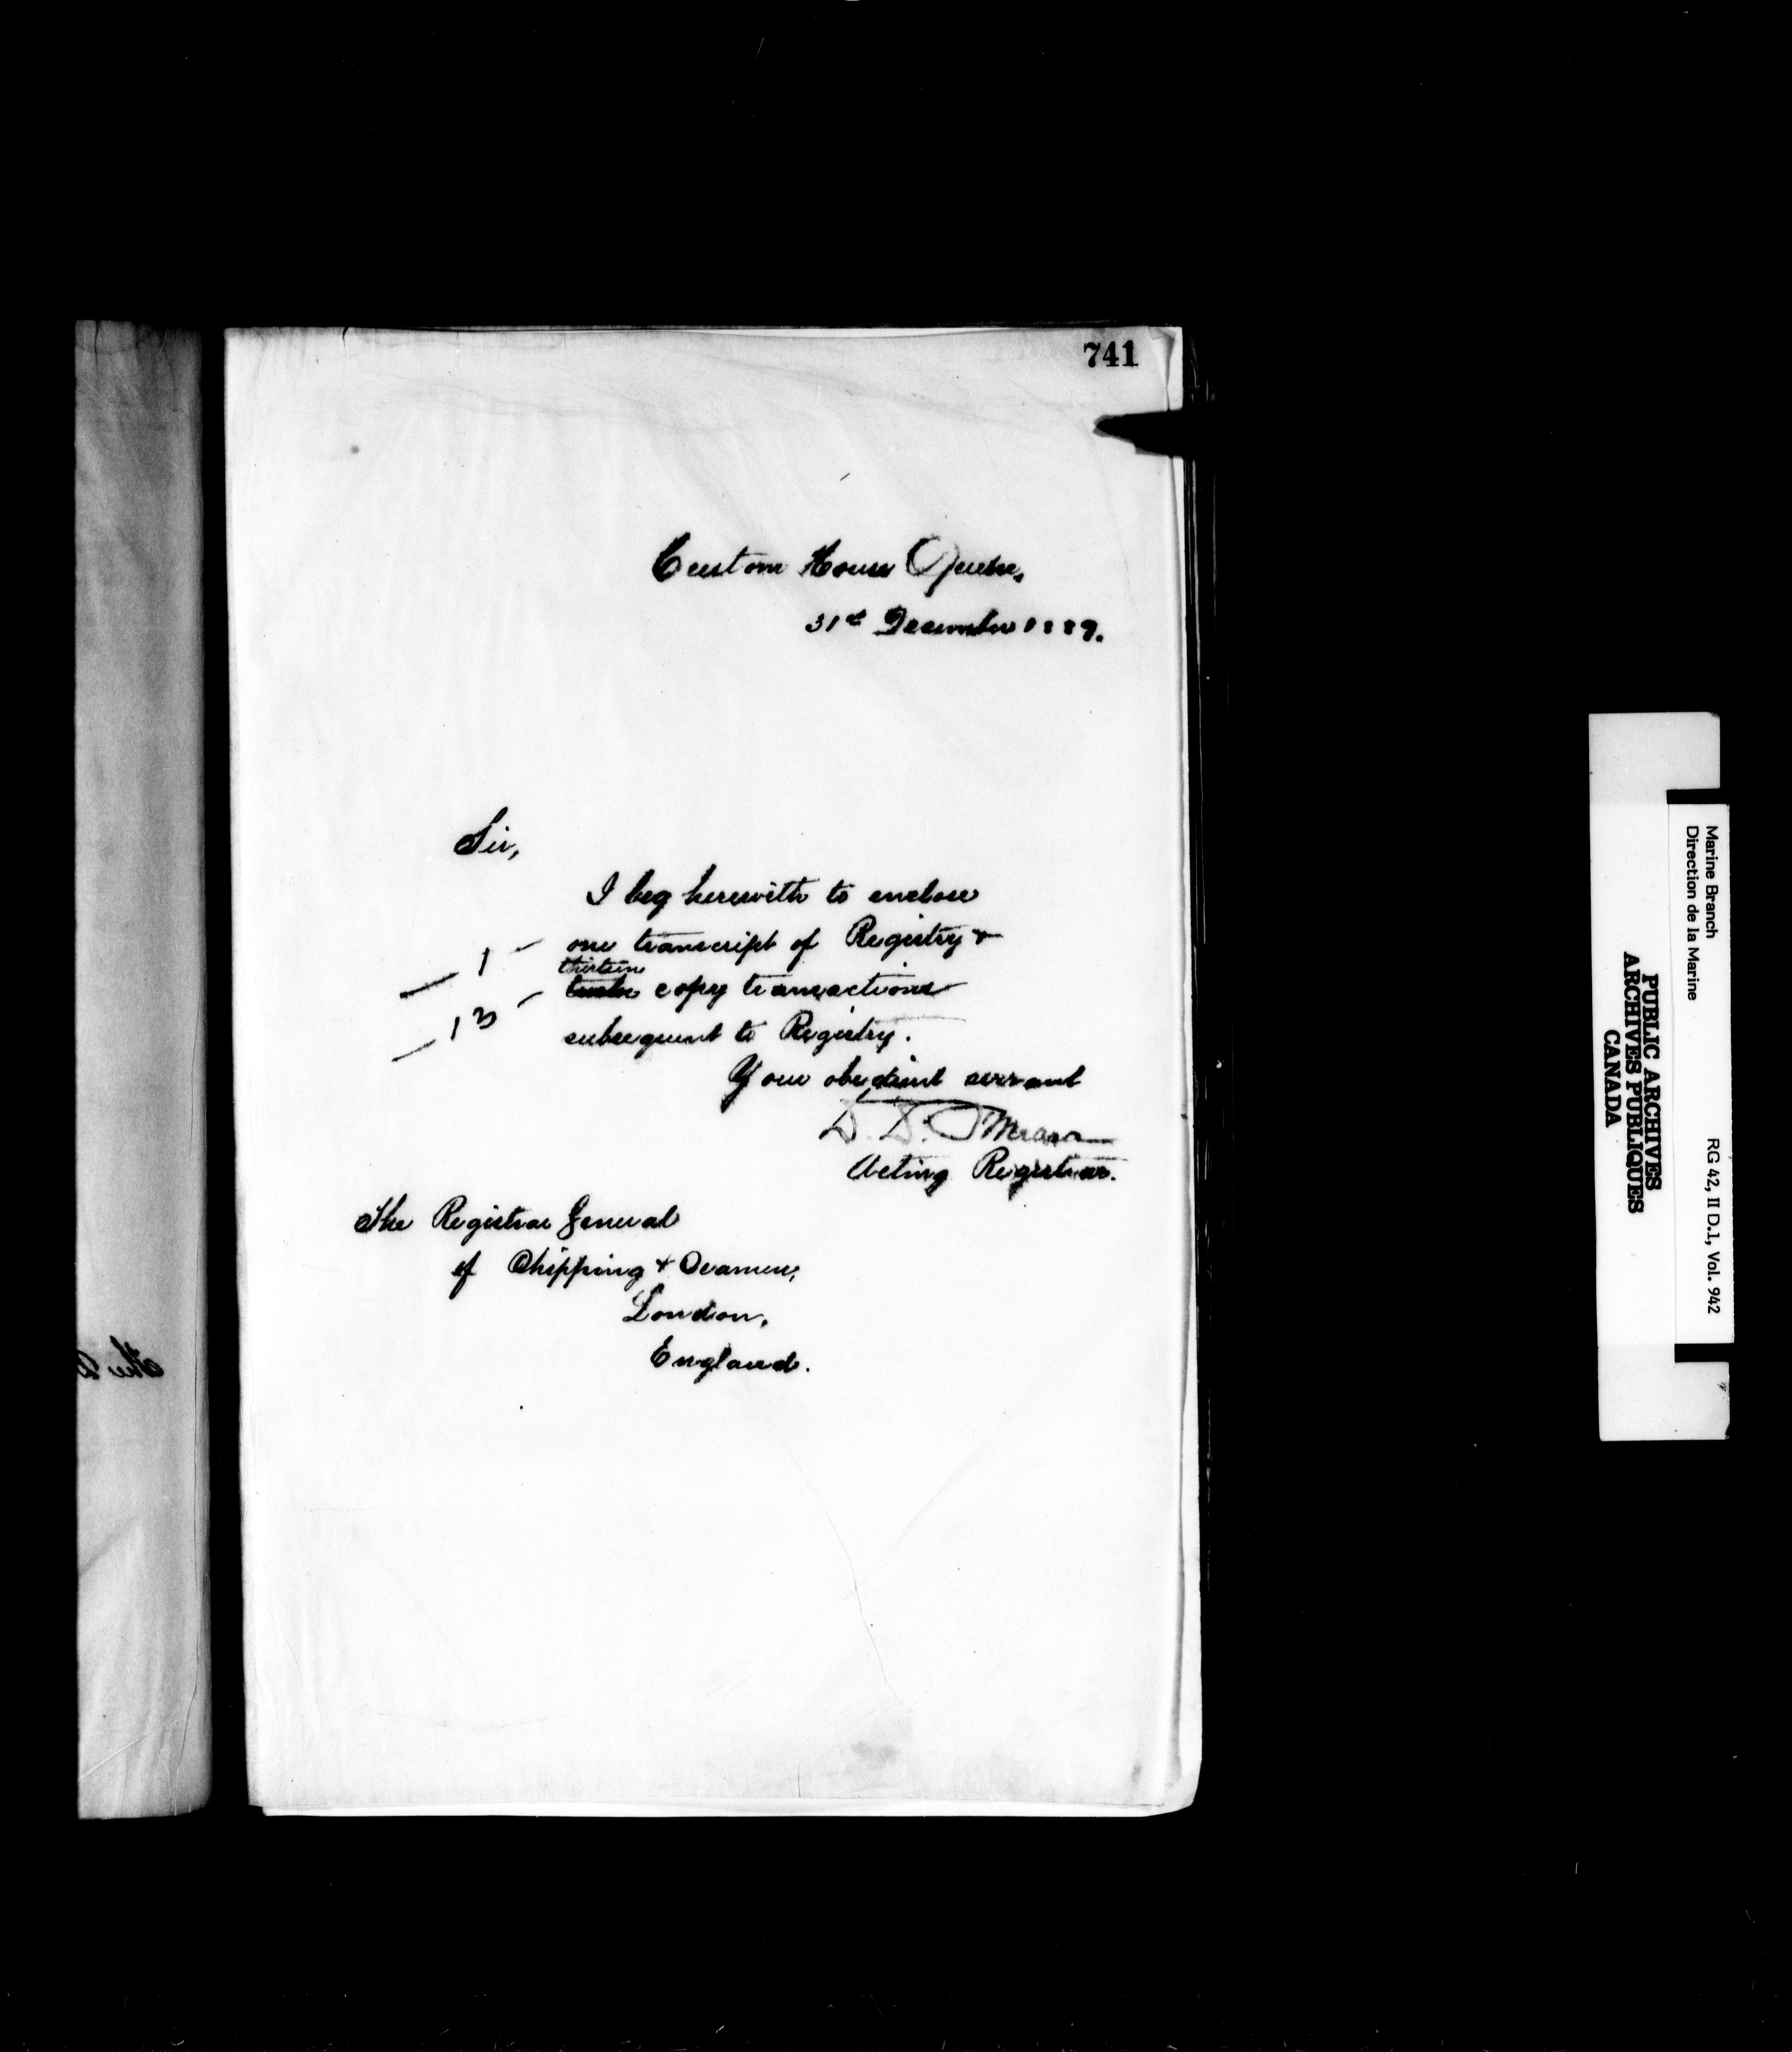 741
Custom House Quebec,
31st December 1889.
Sir,
I beg herewith to enclose
— 1 — one transcript of Registry &
thirteen
— 13 — twelve copy transactions
subsequent to Registry.
Your obedient servant
D. D. O'Meara
Acting Registrar.
The Registrar General
of Shipping & Seamen,
London,
England.
The
Marine Branch
Direction de la Marine
RG 42, II D.1, Vol. 942
PUBLIC ARCHIVES
ARCHIVES PUBLIQUES
CANADA